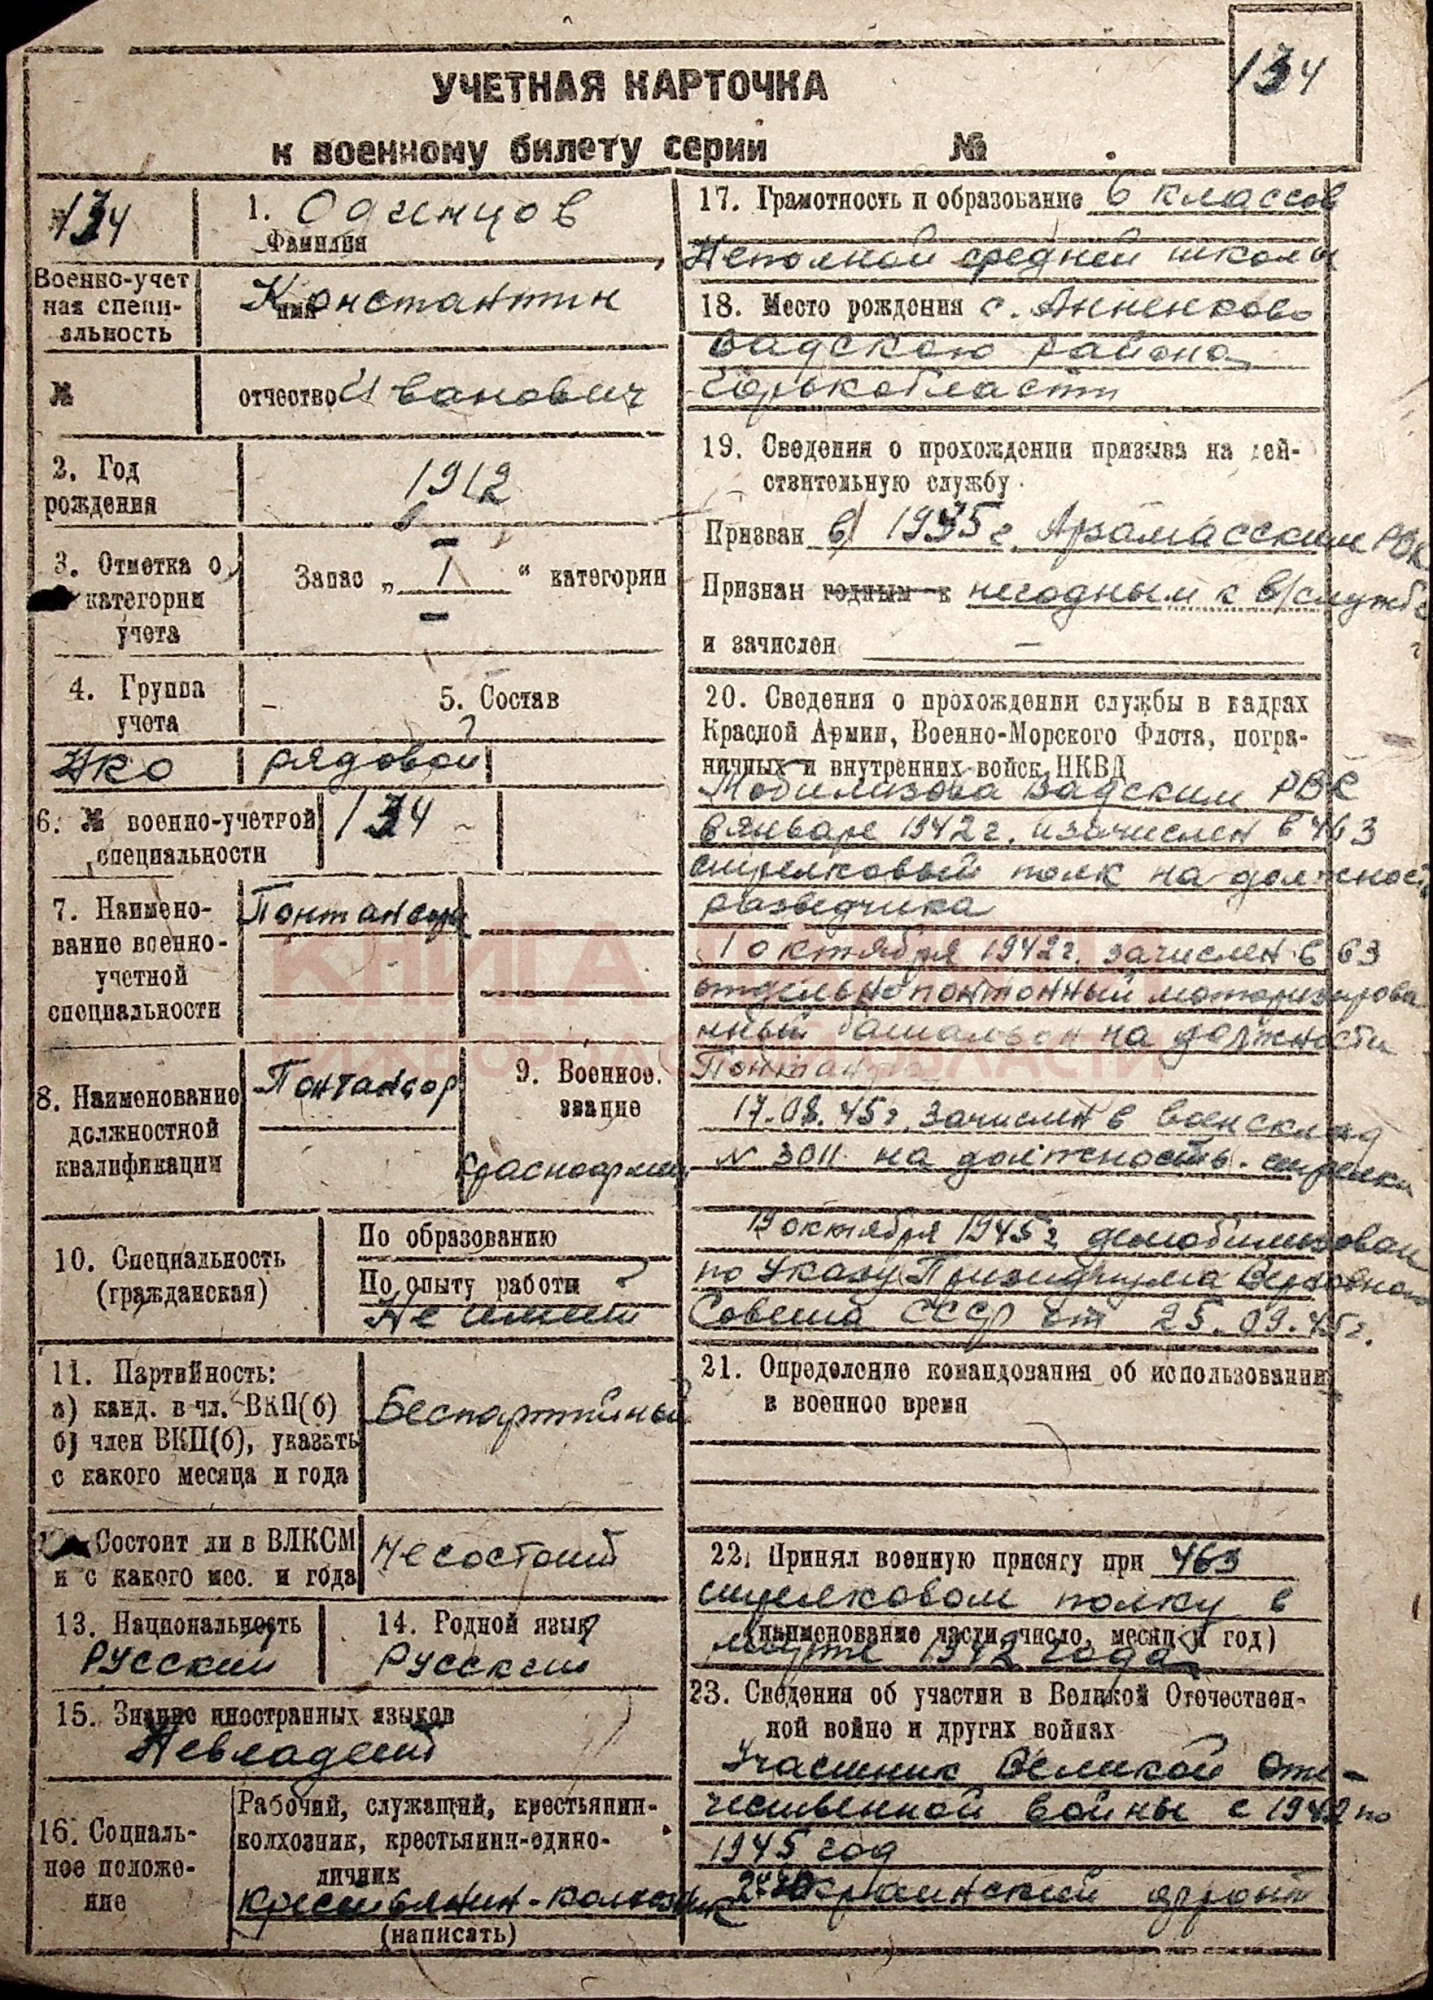 134
УЧЕТНАЯ КАРТОЧКА
к военному билету серии №
134
Военно-учет
ная специ-
альность
№
1. Одинцов
Фамилия
Константин
имя
отчество Иванович
2. Год
рождения
1912
3. Отметка о
категории
учета
Запас „ I “ категории
4. Группа
учета
5. Состав
НКО рядовой
6. № военно-учетной
специальности
134
7. Наимено-
вание военно-
учетной
специальности
8. Наименование
должностной
квалификации
9. Военное
звание
Красноармеец
10. Специальность
(гражданская)
По образованию
По опыту работы
Не имеет
11. Партийность:
а) канд. в чл. ВКП(б)
б) член ВКП(б), указать
с какого месяца и года
Беспартийный
Состоит ли в ВЛКСМ
и с какого мес. и года
Не состоит
13. Национальность
Русский
14. Родной язык
Русский
15. Знание иностранных языков
Невладеет
16. Социаль-
ное положе-
ние
Рабочий, служащий, крестьянин-
колхозник, крестьянин-едино-
личник
крестьянин-колхозник
(написать)
17. Грамотность и образование 6 классов
Неполной средней школы
18. Место рождения с. Анненково
Вадского района
Горькобласти
19. Сведения о прохождении призыва на дей-
ствительную службу
Призван в 1935 г Арзамасским РВК
Признан годным к негодным к в/службе
и зачислен —
20. Сведения о прохождении службы в кадрах
Красной Армии, Военно-Морского Флота, погра-
ничных и внутренних войск НКВД
Мобилизова Вадским РВК
в январе 1942 г. и зачислен в 463
стрелковый полк на должность
разведчика
1 октября 1942 г. зачислен в 63
отдельно понтонный моторизирова
нный батальон на должности
17.08.45 г. зачислен в военсклад
№ 3011 на должность стрелка
19 октября 1945 г демобилизован
по Указу Президиума Верховного
Совета СССР от 25.09.45 г.
21. Определение командования об использовании
в военное время
22. Принял военную присягу при 463
стрелковом полку в
(наименование части, число, месяц и год)
марте 1942 года
23. Сведения об участии в Великой Отечествен-
ной войне и других войнах
Участник Великой Оте-
чественной войны с 1942 по
1945 год
Украинский фронт
КНИГА ПАМЯТИ
НИЖЕГОРОДСКОЙ ОБЛАСТИ